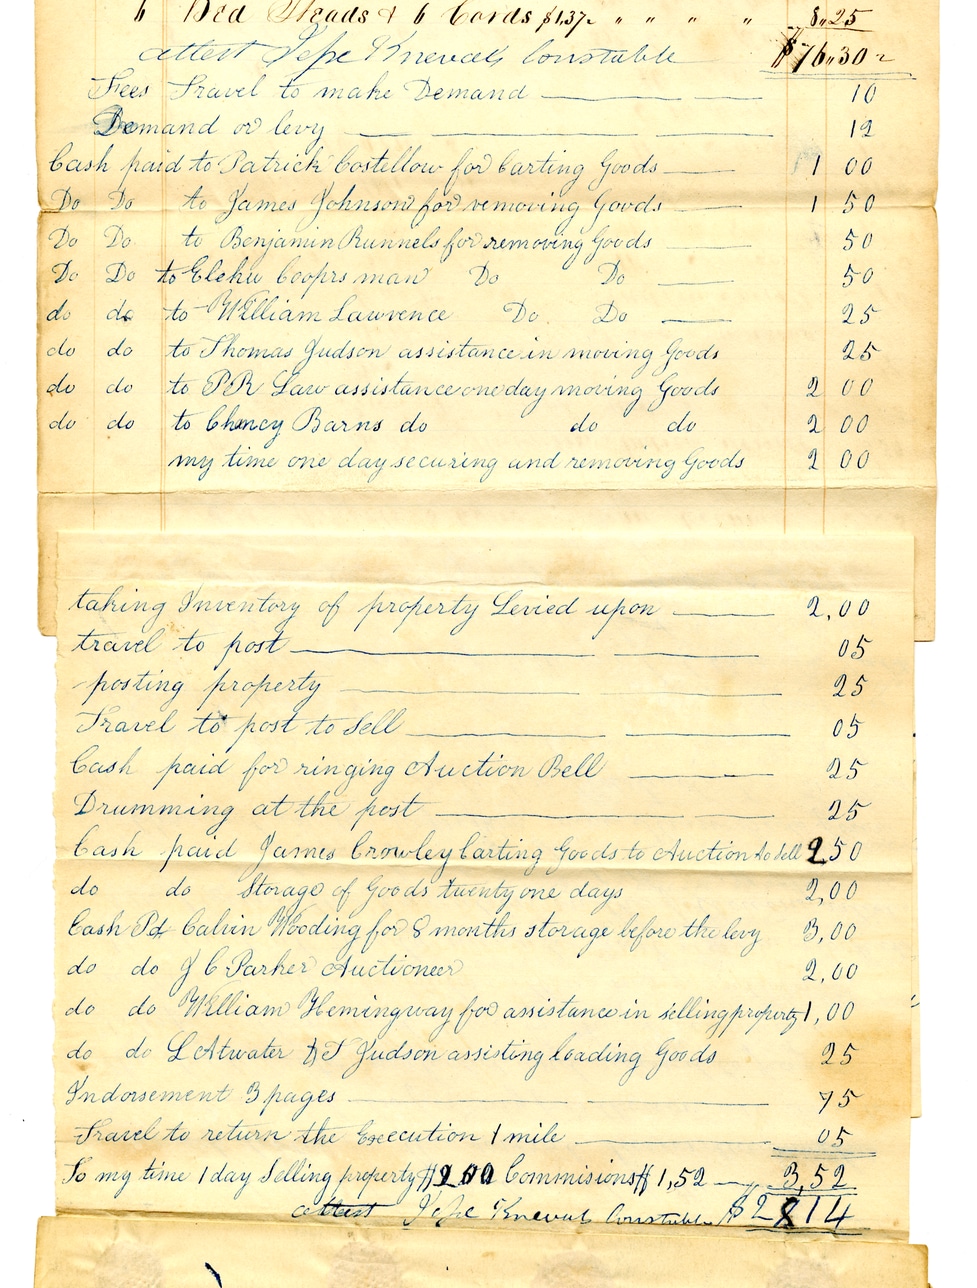 6 Bed Steads & 6 Cords $1.37 " " " " 8,,25
attest Jesse Knevals Constable $76,,30
Fees Travel to make Demand 10
Demand or levy 12
Cash paid to Patrick Costillow for Carting Goods 1 00
Do Do to James Johnson for removing Goods 1 50
Do Do to Benjamin Runnels for removing Goods 50
Do Do to Elehu Cooprs man Do Do 50
do do to William Lawrence Do Do 25
do do to Thomas Judson assistance in moving Goods 25
do do to P R Law assistance one day moving Goods 2 00
do do to Chancy Barns do do do 2 00
my time one day securing and removing Goods 2 00
taking Inventory of property Levied upon 2,00
travel to post 05
posting property 25
Travel to post to Sell 05
Cash paid for ringing Auction Bell 25
Drumming at the post 25
Cash paid James Crowley Carting Goods to Auction to Sell 2 50
do do Storage of Goods twenty one days 2,00
Cash Pd Calvin Wooding for 8 months storage before the levy 3,00
do do J C Parker Auctioneer 2,00
do do William Hemingway for assistance in selling property 1,00
do do L Atwater & T Judson assisting loading Goods 25
Indorsement 3 pages 75
Travel to return the Execution 1 mile 05
To my time 1 day Selling property $2 00 Commisions $1,52 3,52
attest Jesse Knevals Constable $28 14